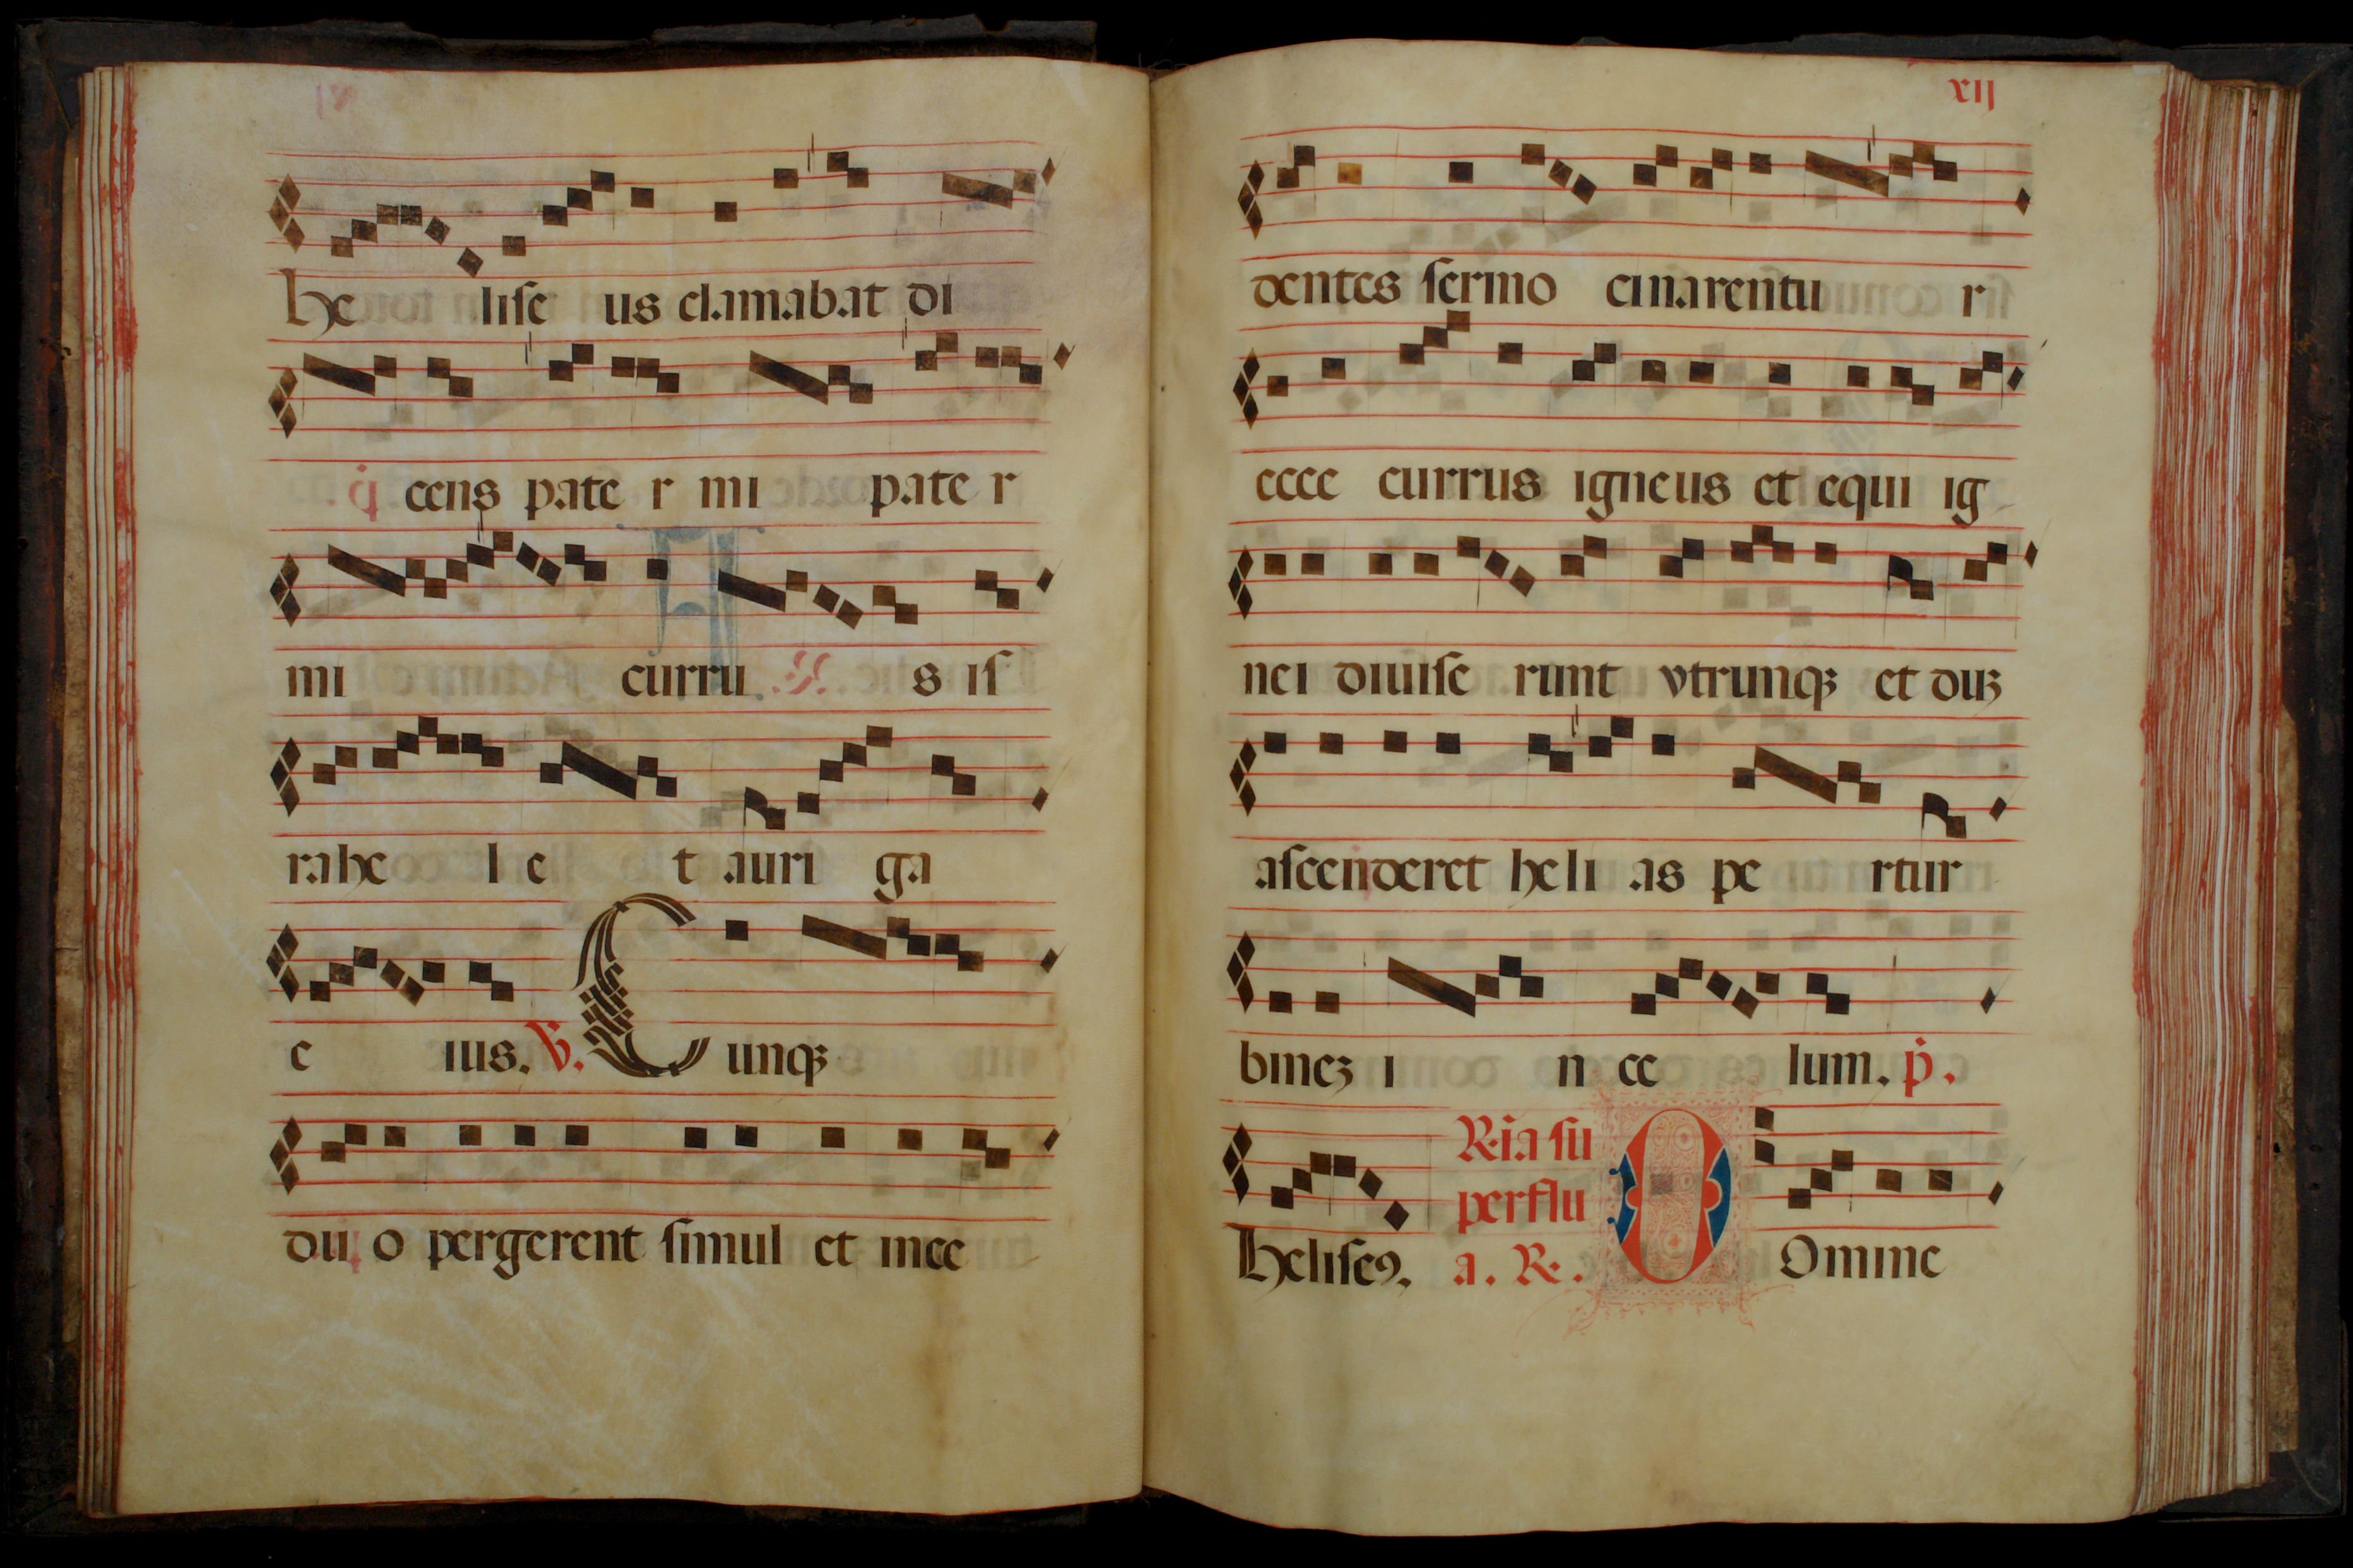 he liſe us clamabat di
cens pate r mi pate r
mi curru s iſ
rahe l e t auri ga
e ius. V. Cunqꝫ
du o pergerent ſimul et ince
xij
dentes ſermo cinarentu r
ecce currus igneus et equi ig
nei diuiſe runt vtrunqꝫ et duꝫ
aſcenderet heli as pe rtur
bineꝫ i n ce lum. ṗ.
heliſeꝯ. R. ia ſu
perflu
a. R. Domine